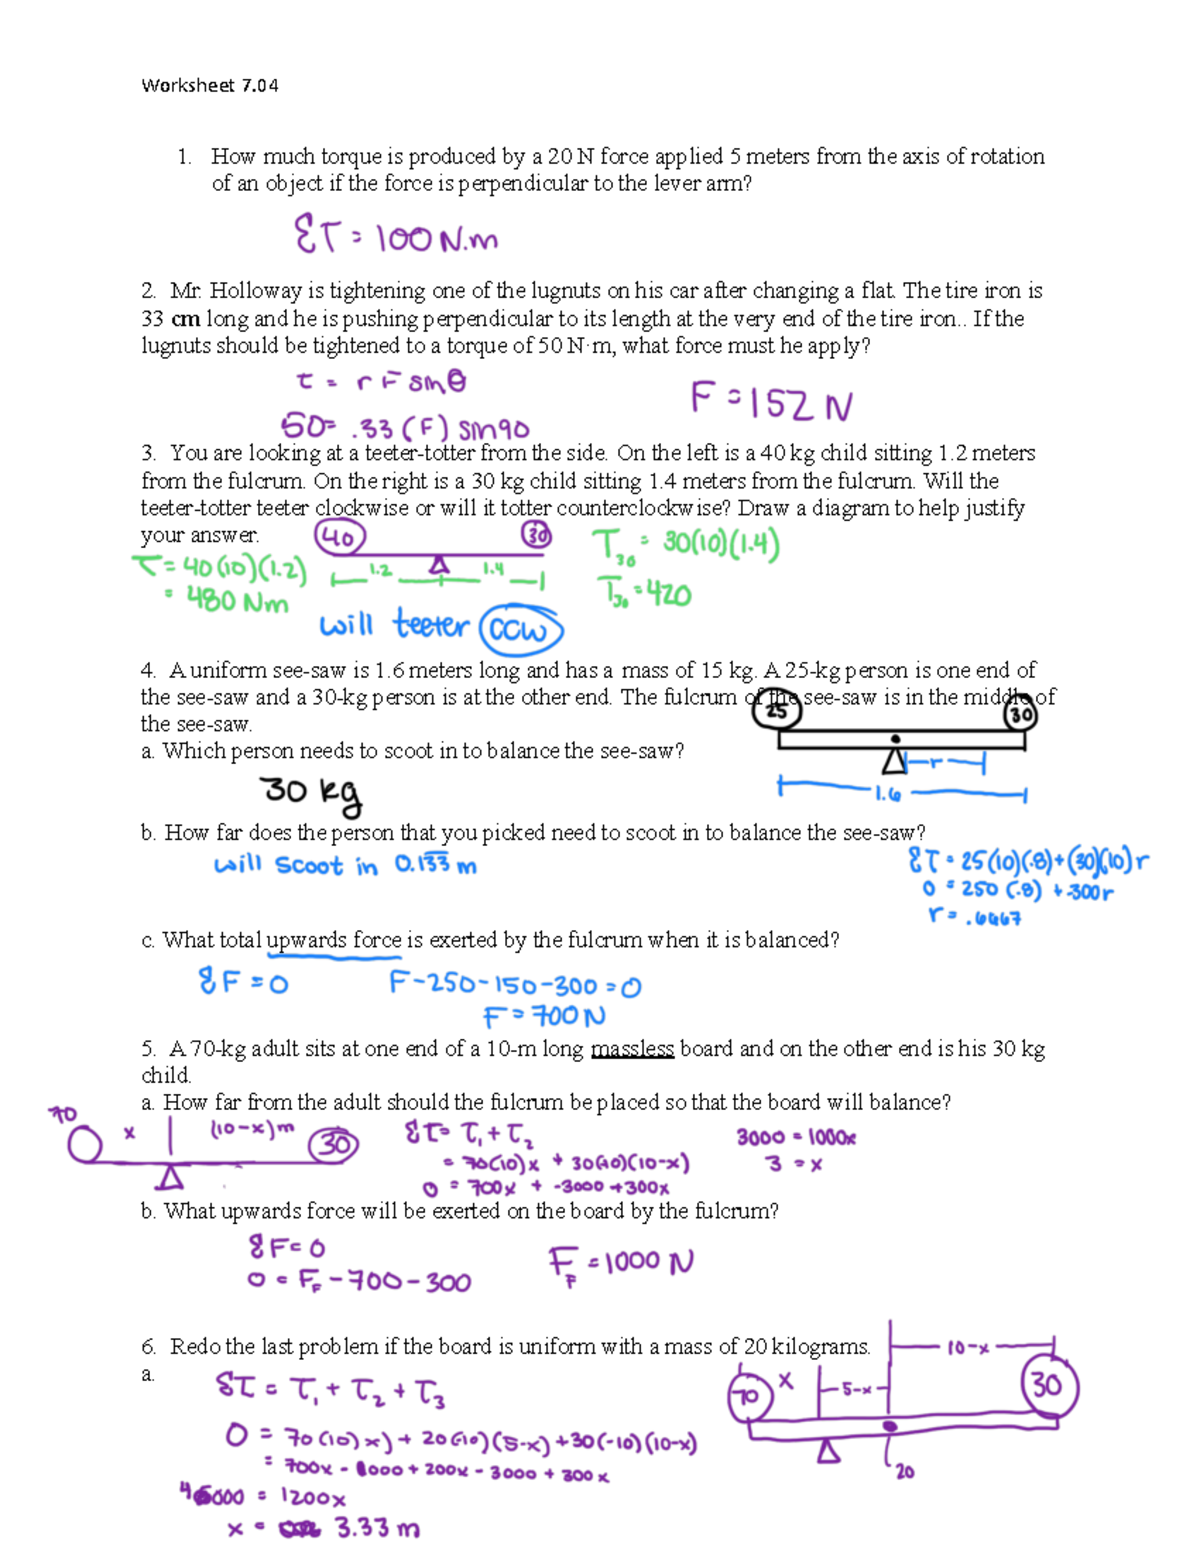 Worksheet 7.04
1. How much torque is produced by a 20 N force applied 5 meters from the axis of rotation
of an object if the force is perpendicular to the lever arm?
Στ = 100 N.m
2. Mr. Holloway is tightening one of the lugnuts on his car after changing a flat. The tire iron is
33 cm long and he is pushing perpendicular to its length at the very end of the tire iron.. If the
lugnuts should be tightened to a torque of 50 N·m, what force must he apply?
τ = r F sinθ
F = 152 N
50 = .33 (F) sin90
3. You are looking at a teeter-totter from the side. On the left is a 40 kg child sitting 1.2 meters
from the fulcrum. On the right is a 30 kg child sitting 1.4 meters from the fulcrum. Will the
teeter-totter teeter clockwise or will it totter counterclockwise? Draw a diagram to help justify
your answer.
40
30
τ = 40(10)(1.2)
= 480 Nm
1.2
1.4
τ30 = 30(10)(1.4)
τ30 = 420
will teeter CCW
4. A uniform see-saw is 1.6 meters long and has a mass of 15 kg. A 25-kg person is one end of
the see-saw and a 30-kg person is at the other end. The fulcrum of the see-saw is in the middle of
the see-saw.
25
30
r
1.6
a. Which person needs to scoot in to balance the see-saw?
30 kg
b. How far does the person that you picked need to scoot in to balance the see-saw?
will scoot in 0.133 m
Στ = 25(10)(.8)+(30)(10)r
0 = 250 (.8) + -300r
r = .6667
c. What total upwards force is exerted by the fulcrum when it is balanced?
ΣF = 0
F-250-150-300 = 0
F = 700 N
5. A 70-kg adult sits at one end of a 10-m long massless board and on the other end is his 30 kg
child.
a. How far from the adult should the fulcrum be placed so that the board will balance?
70
x
(10-x)m
30
Στ = τ1 + τ2
= 70(10)x + 30(-10)(10-x)
0 = 700x + -3000 +300x
3000 = 1000x
3 = x
b. What upwards force will be exerted on the board by the fulcrum?
ΣF = 0
0 = FF - 700 - 300
FF = 1000 N
6. Redo the last problem if the board is uniform with a mass of 20 kilograms.
a.
10-x
70
x
5-x
30
20
Στ = τ1 + τ2 + τ3
0 = 70(10)x) + 20(-10)(5-x) +30(-10)(10-x)
= 700x - 1000 + 200x - 3000 + 300x
4000 = 1200x
x = 3.33 m